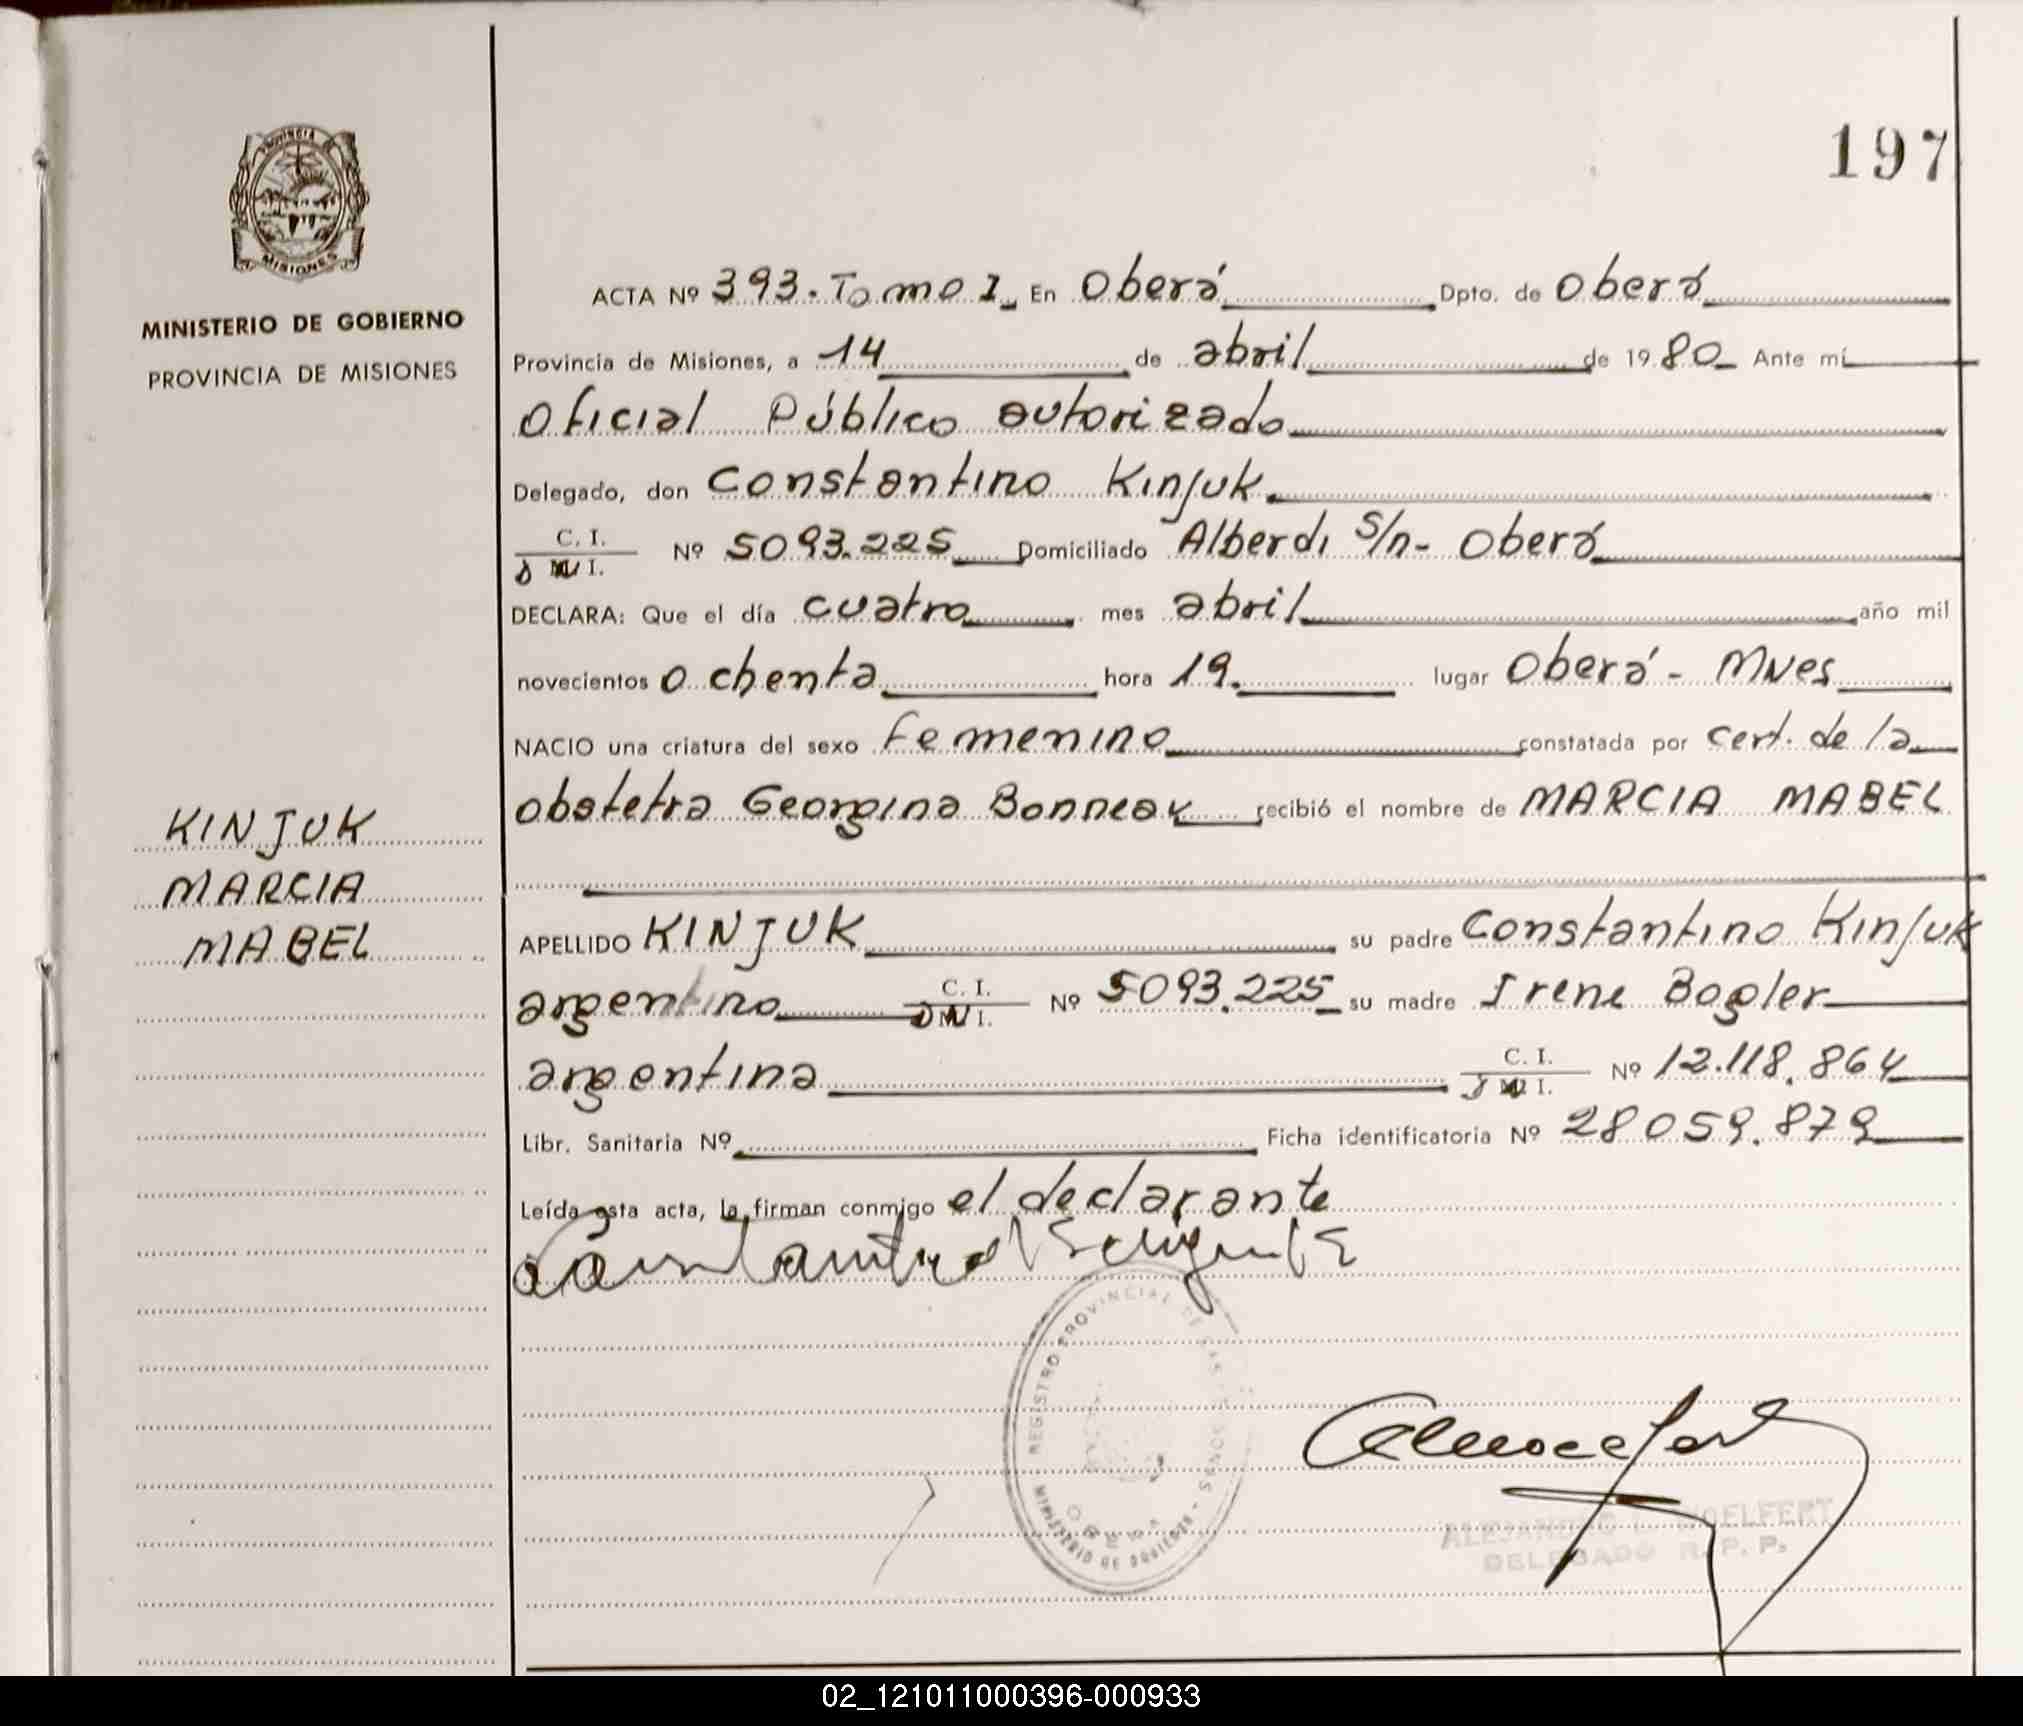 197
PROVINCIA DE
MISIONES
MINISTERIO DE GOBIERNO
PROVINCIA DE MISIONES
ACTA Nº 393. Tomo I En Oberá Dpto. de Oberá
Provincia de Misiones, a 14 de abril de 1980 Ante mí
Oficial Público autorizado
Delegado, don Constantino Kinjuk
C. I.
D N I. Nº 5093.225 Domiciliado Alberdi s/n - Oberá
DECLARA: Que el día cuatro mes abril año mil
novecientos ochenta hora 19. lugar Oberá - Mnes
NACIO una criatura del sexo femenino constatada por cert. de la
obstetra Georgina Bonneau recibió el nombre de MARCIA MABEL
KINJUK
MARCIA
MABEL
APELLIDO KINJUK su padre Constantino Kinjuk
argentino C. I. D N I. Nº 5093.225 su madre Irene Bogler
argentina C. I. D N I. Nº 12.118.864
Libr. Sanitaria Nº Ficha identificatoria Nº 28059.879
Leída esta acta, la firman conmigo el declarante
REGISTRO PROVINCIAL DE LAS PERSONAS - MINISTERIO DE GOBIERNO
OBERA
ALEJANDRO WOELFERT
DELEGADO R. P. P.
02_121011000396-000933